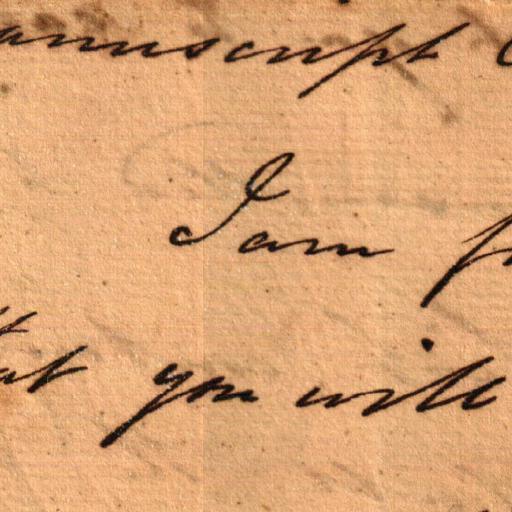 manuscript
I am
that you will